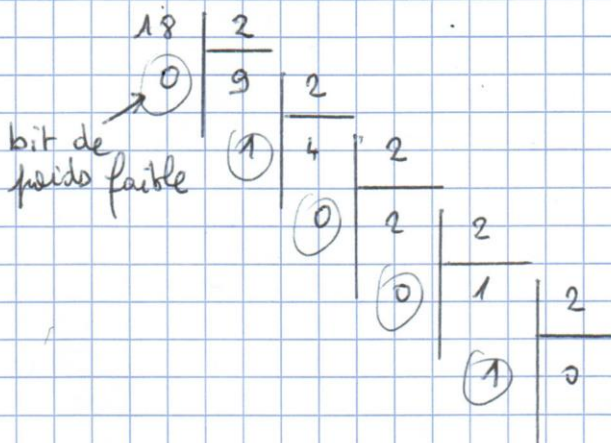 18 2
0 9 2
bit de
1 4 2
poids faible
0 2 2
0 1 2
1 0